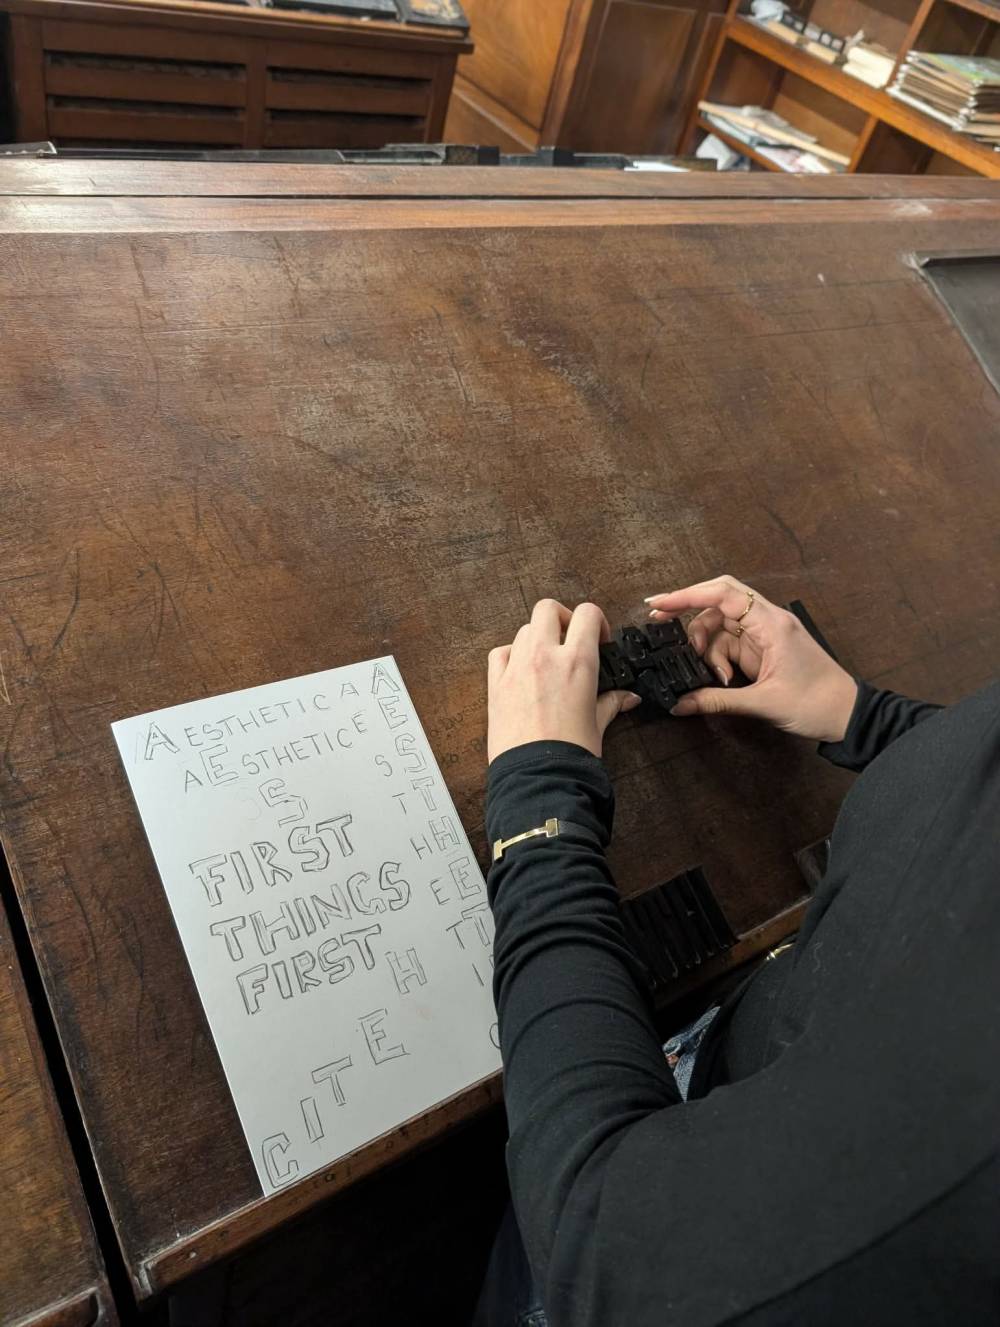 AESTHETICA
AESTHETICE
S
FIRST
THINGS
FIRST
H
E
T
I
C
AESTHETI
S
T
H
E
T
I
C